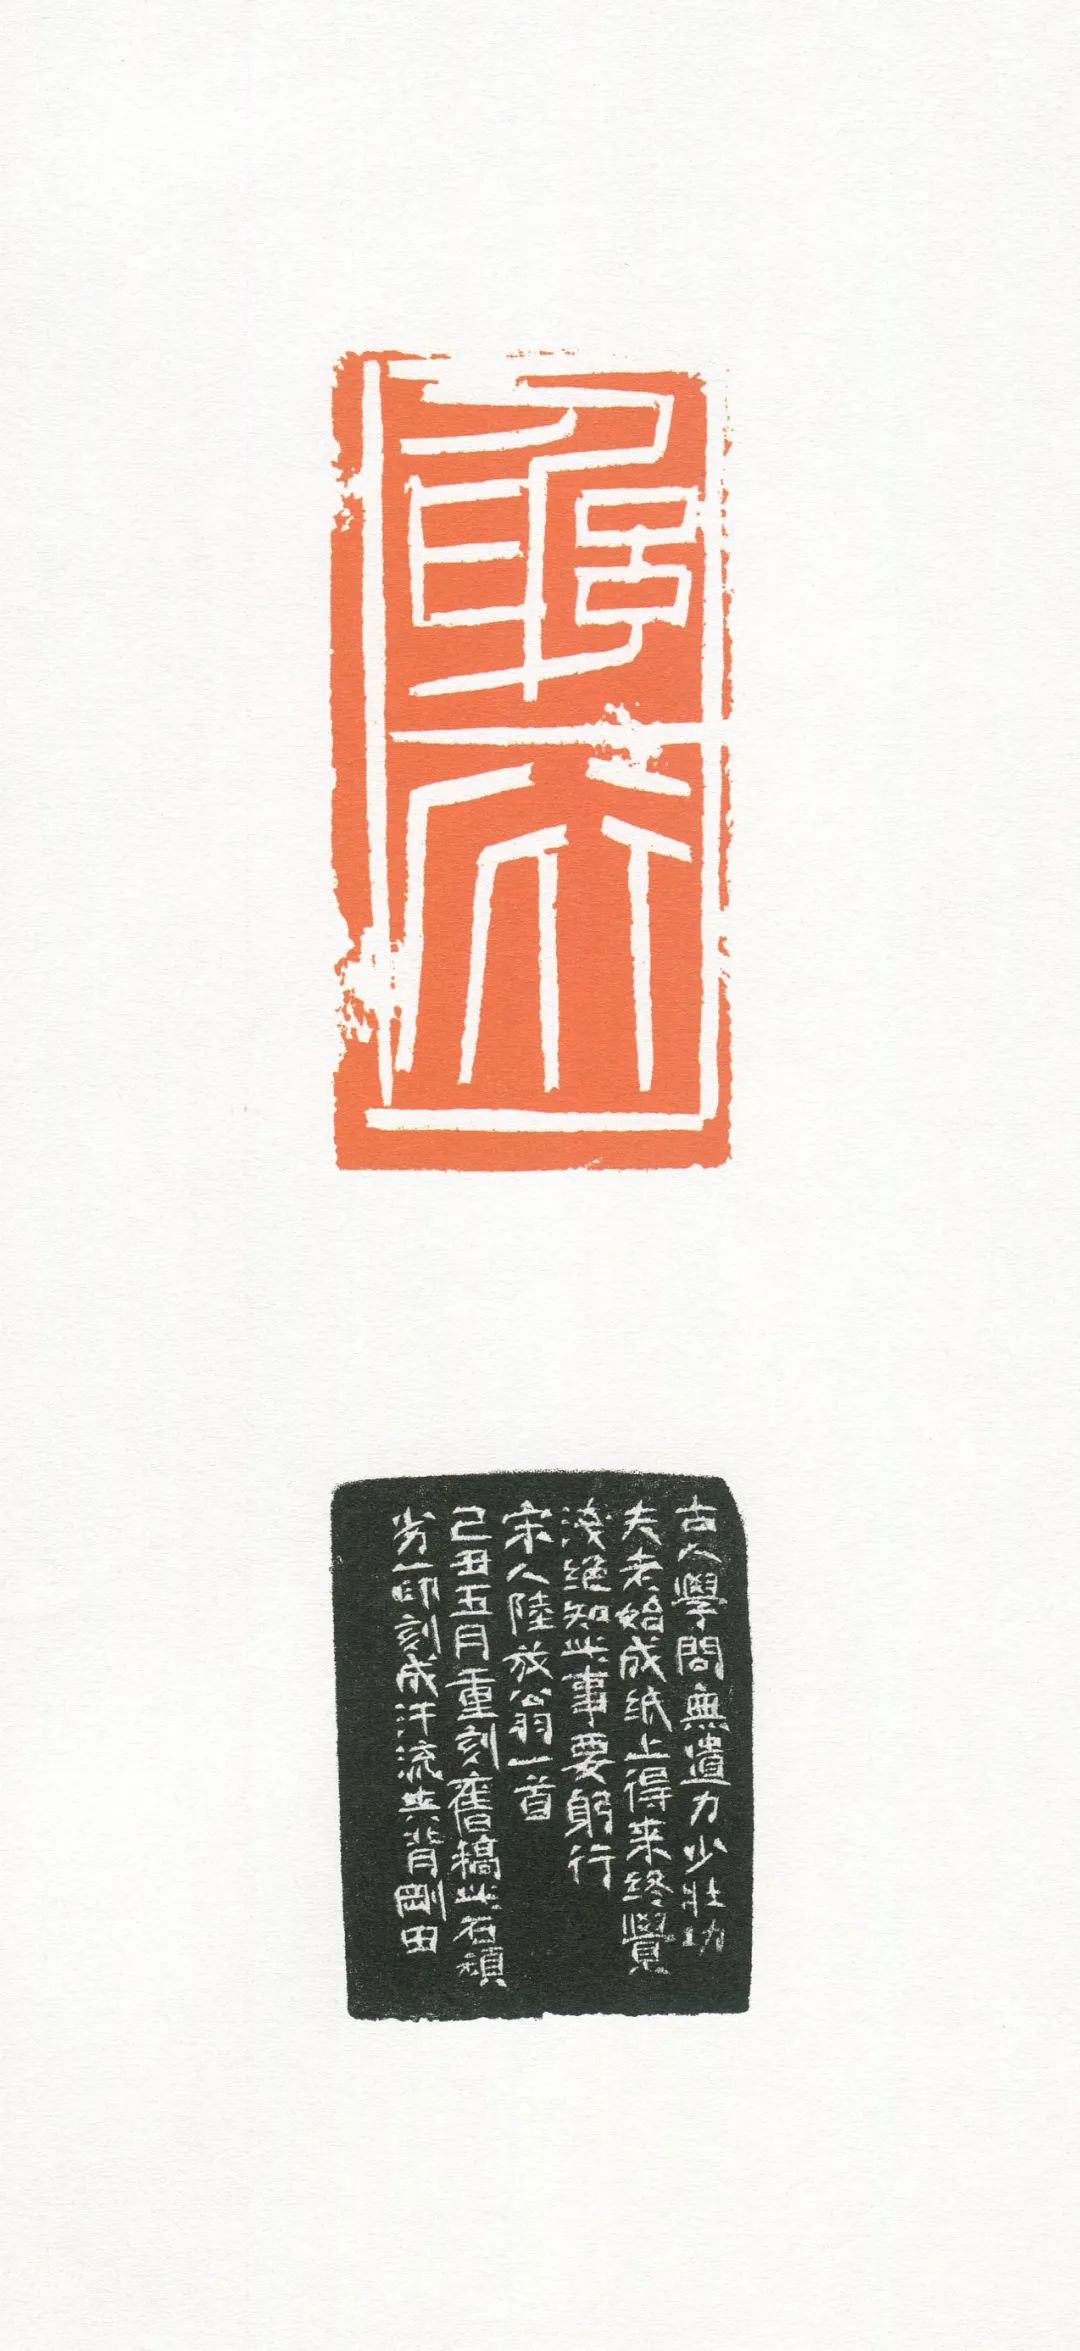 躳行
古人學問無遺力少壯功
夫老始成纸上得来终覺
淺絕知此事要躬行
宋人陸放翁一首
己丑五月重刻舊稿此石頑
劣一印刻成汗流背剛田